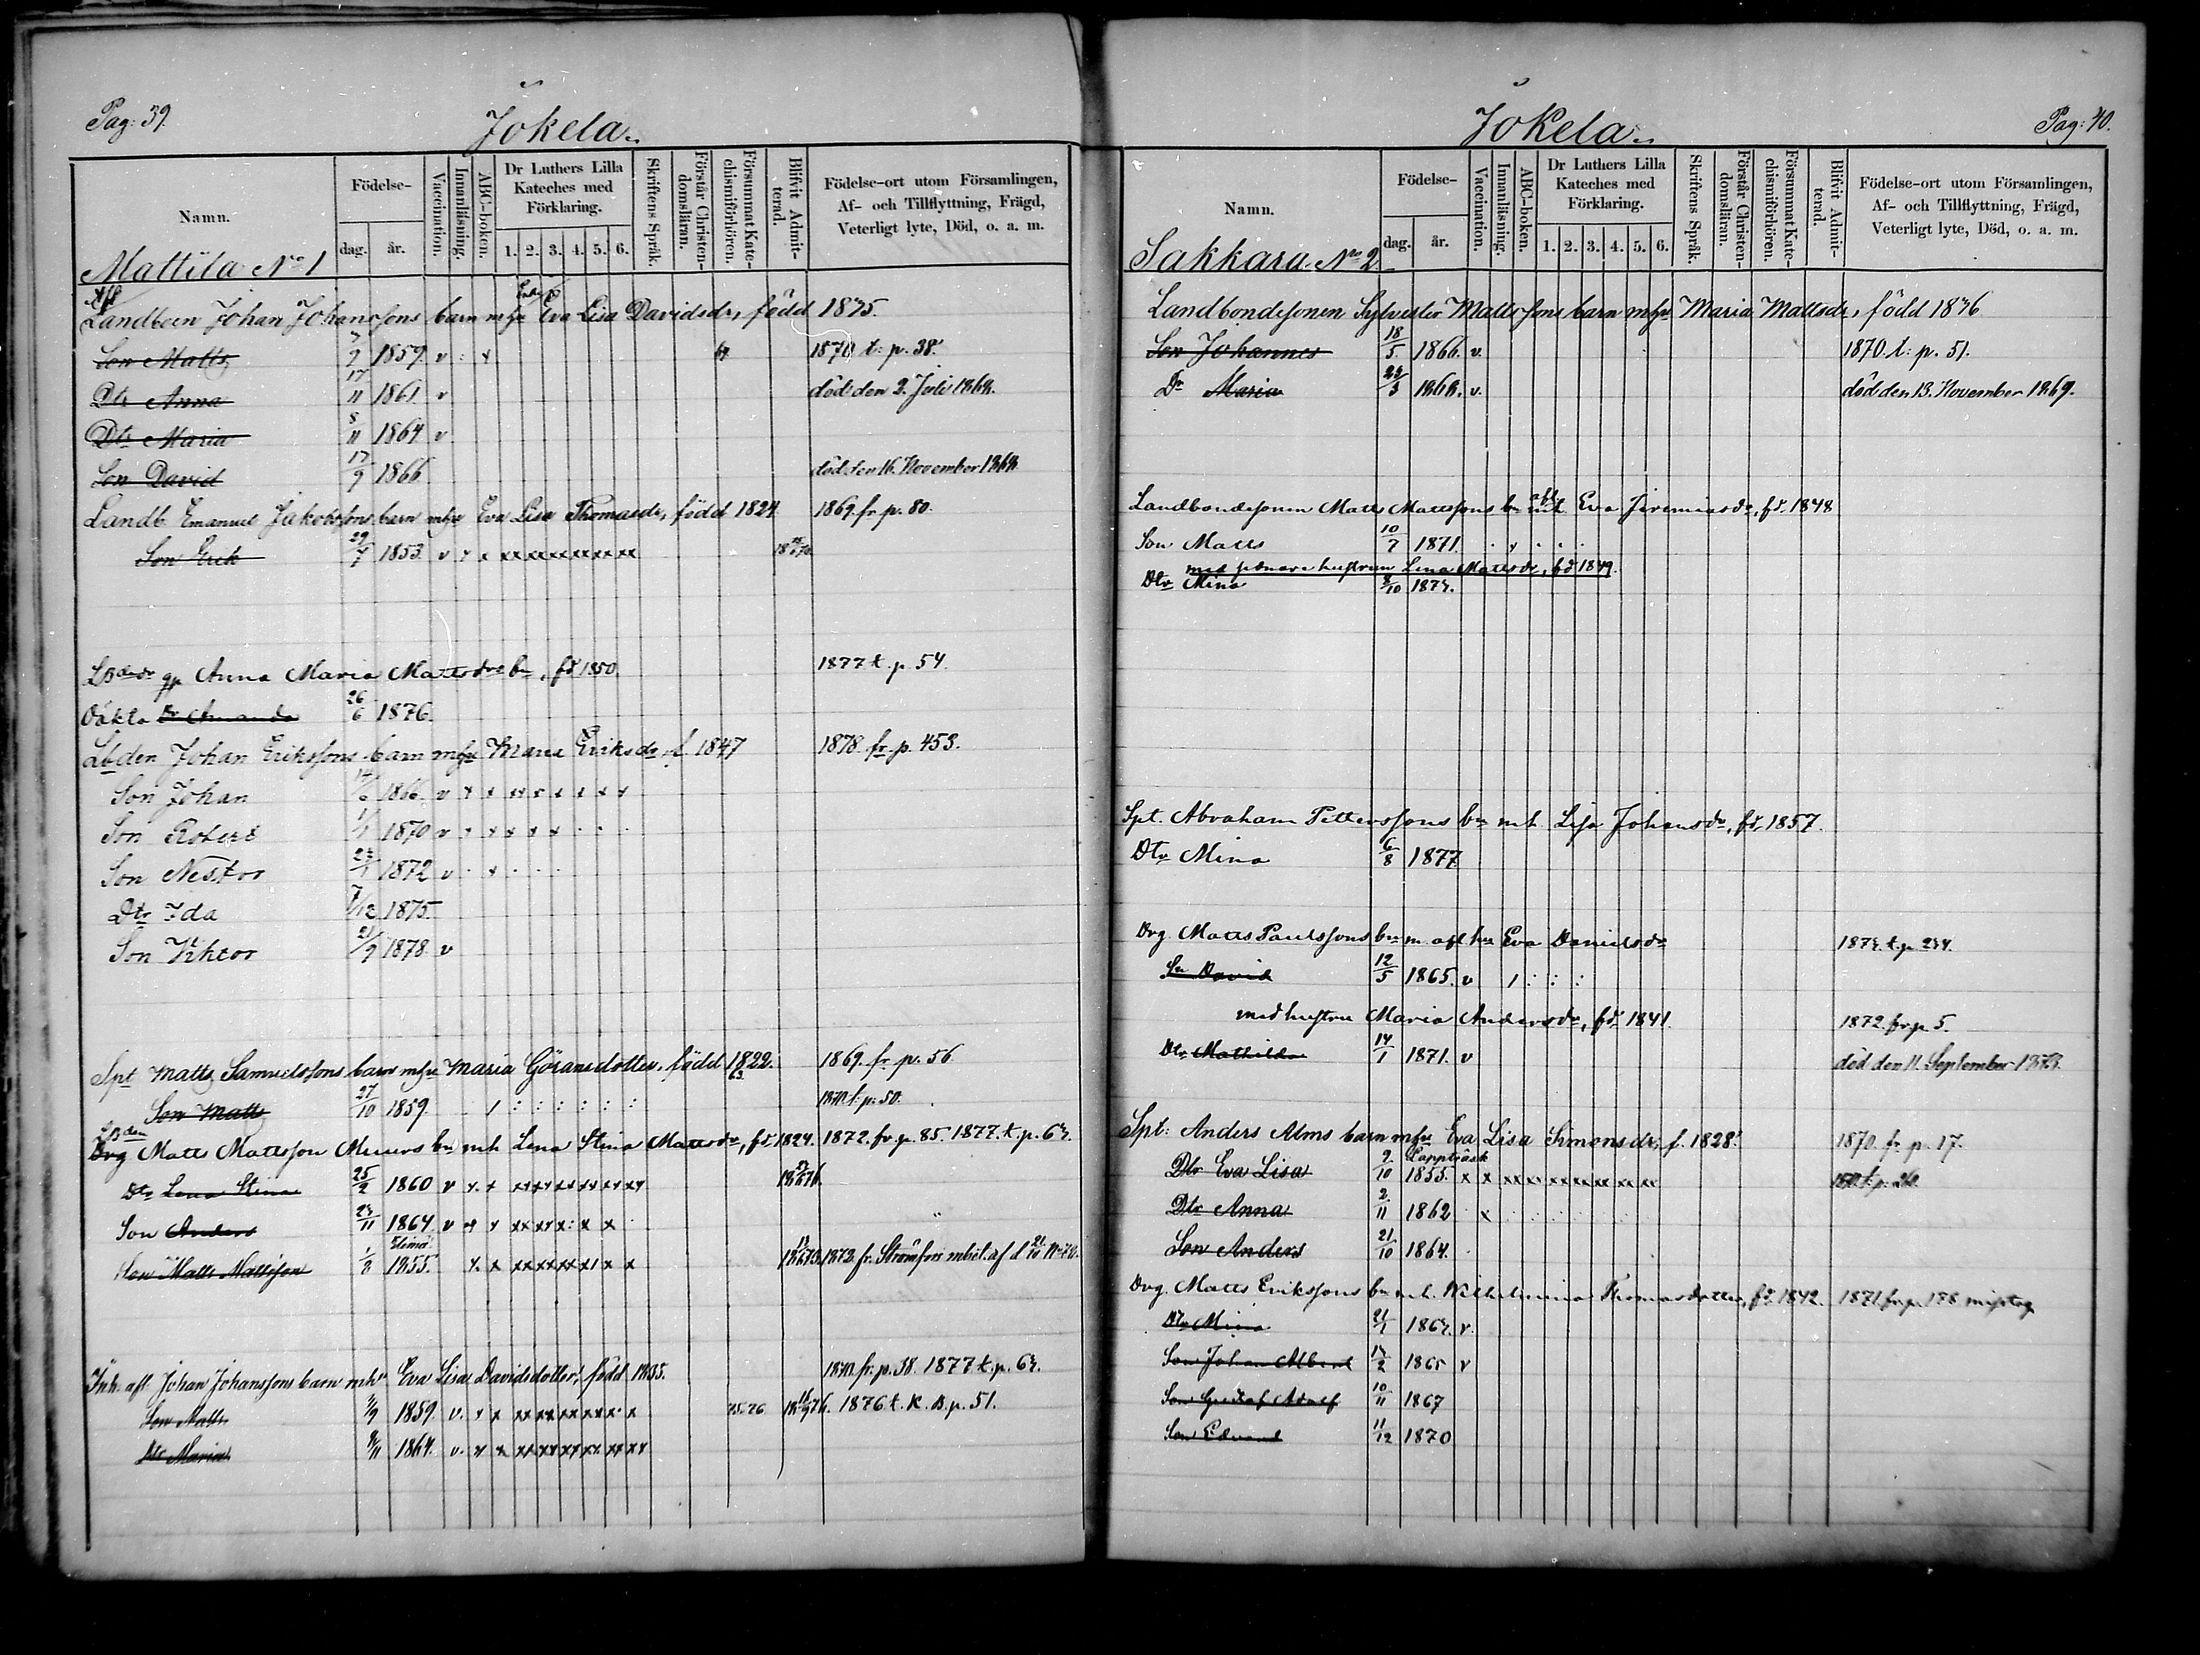 Pag: 39.
Jokela.
Namn.
Födelse-
dag.
år.
Vaccination.
Innanläsning.
ABC-boken.
Dr Luthers Lilla Kateches med Förklaring.
1. 2. 3. 4. 5. 6.
Skriftens Språk.
Förstår Christendomsläran.
Försummat Katechismiförhören.
Blifvit Admitterad.
Födelse-ort utom Församlingen, Af- och Tillflyttning, Frägd, Veterligt lyte, Död, o. a. m.
Mattila No 1
Afl Landboen Johan Johanssons barn mhu Enka Eva Lisa Davidsdr, född 1835.
Son Matts 7/9 1859. v : x 1870 t. p. 38.
Dtr Anna 17/11 1861 v död den 2. Juli 1868.
Dtr Maria 8/11 1864 v
Son David 17/9 1866 död den 16. November 1868
Landb. Emanuel Jakobssons barn mhu Eva Lisa Thomasdr, född 1824 1869. fr p. 80.
Son Erik 29/7 1853. v x x xx xx xx xx xx xx
gp Anna Maria Mattsdrs bn, fd 1850. 1877 t. p. 54
Oäkta Dr Amanda 26/6 1876.
Lbden Johan Erikssons barn mhu Maria Eriksdr f. 1847 1878. fr. p. 453.
Son Johan 1866. v x x xx x x x x x
Son Robert 1/1 1870 v · x x x x x · · ·
Son Nestor 23/1 1872 v · x · · ·
Dtr Ida 7/12 1875.
Son Viktor 21/9 1878. v
Spt Matts Samuelssons barn mhu Maria Göransdotter, född 1822. 1869. fr. p. 56
Son Matts 27/10 1859 1 : : : : : : 1870 t. p. 50.
Drg Matts Mattsson Murers bn mh Lena Stina Mattsdr, fd. 1824. 1872. fr. p. 85. 1877. t. p. 63.
Dtr Lena Stina 25/2 1860 v x x xx xx xx xx xx xx
Son Anders 23/11 1864. v x x xx xx x: x x
Elimä
Son Matts Mattsson 1/2 1855. x x xx xx xx x1 x x 1873. fr. Strömfors
Inh. afl Johan Johanssons barn mhu Eva Lisa Davidsdotter, född 1835. 1870. fr. p. 38. 1877 t. p. 63.
Son Matts 7/9 1859. v. x x xx xx xx xx x x 75. 76 1876 t. K. B. p. 51.
Dtr Maria 8/11 1864. v. x x xx xx xx xx xx xx
Jokela.
Pag: 40.
Namn.
Födelse-
dag.
år.
Vaccination.
Innanläsning.
ABC-boken.
Dr Luthers Lilla Kateches med Förklaring.
1. 2. 3. 4. 5. 6.
Skriftens Språk.
Förstår Christendomsläran.
Försummat Katechismiförhören.
Blifvit Admitterad.
Födelse-ort utom Församlingen, Af- och Tillflyttning, Frägd, Veterligt lyte, Död, o. a. m.
Sakkara No 2
Landbondesonen Sylvester Mattssons barn mhu Maria Mattsdr, född 1836
Son Johannes 18/5 1866. v. 1870. t: p. 51.
Dr Maria 23/3 1868. v. död den 13. November 1869.
Landbondesonen Matts Mattssons bn afl Eva Jeremiasdr, fd. 1848
Son Matts 10/7 1871. · x · · ·
med senare hustrun Lena Mattsdr, fd 1849.
Dtr Mina 8/10 1873.
Spt. Abraham Petterssons bn mh Lisa Johansdr, fd. 1857.
Dtr Mina 6/8 1877
Drg Matts Paulssons bn m. afl hu Eva Danielsdr 1873. t. p. 234.
Sn David 12/5 1865. v 1 : : :
med hustrun Maria Andersdr, fd. 1841. 1872. fr. p 5.
Dtr Mathilda 14/1 1871. v död den 11. September 1873.
Spt: Anders Alms barn mhu Eva Lisa Simonsdr, f. 1828. 1870. fr. p. 17.
Lappträsk
Dtr Eva Lisa 9/10 1855. x x xx xx xx xx xx xx
Dtr Anna 2/11 1862 x
Son Anders 21/10 1864.
Drg. Matts Erikssons bn mh. Wilhelmina Thomasdotter, fd. 1842. 1871. fr. p. 178
Dtr Mina 21/1 1863. v.
Son Johan Albert 1865 v
Son Gustaf Adolf 10/11 1867
Son Edvard 11/12 1870